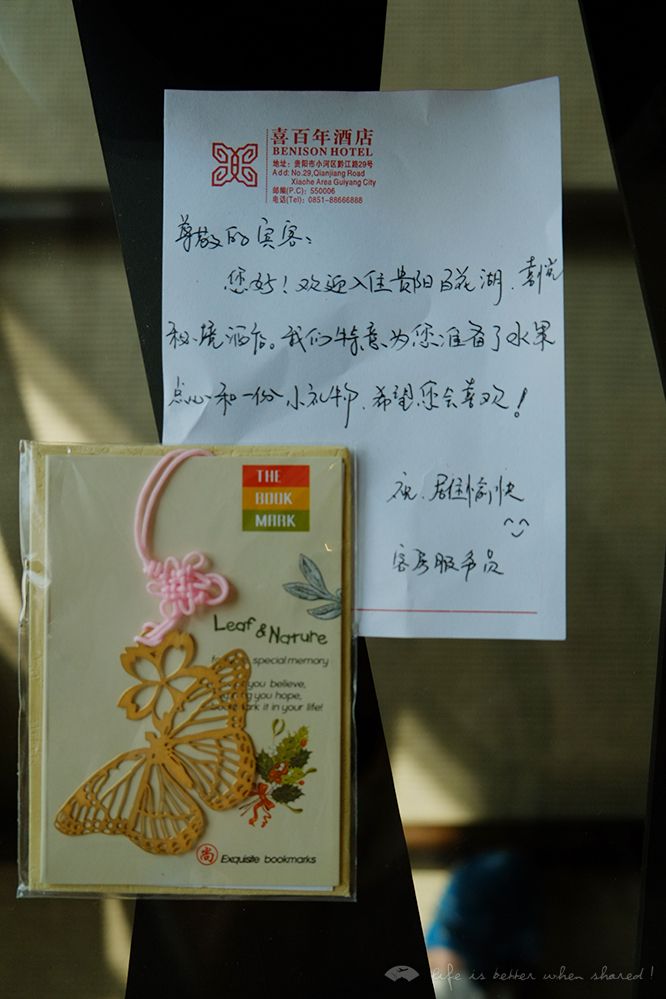 喜百年酒店
BENISON HOTEL
地址：贵阳市小河区黔江路29号
Add: No.29,Qianjiang Road
Xiaohe Area Guiyang City
邮编(P.C): 550006
电话(Tel): 0851-88666888
尊敬的宾客：
您好！欢迎入住贵阳百花湖．喜悦
秘境酒店。我们特意为您准备了水果
点心和一份小礼物．希望您会喜欢！
祝．居住愉快
客房服务员
THE
BOOK
MARK
Leaf & Nature
special memory
you believe,
you hope,
mark it in your life!
尚 Exquisite bookmarks
life is better when shared!